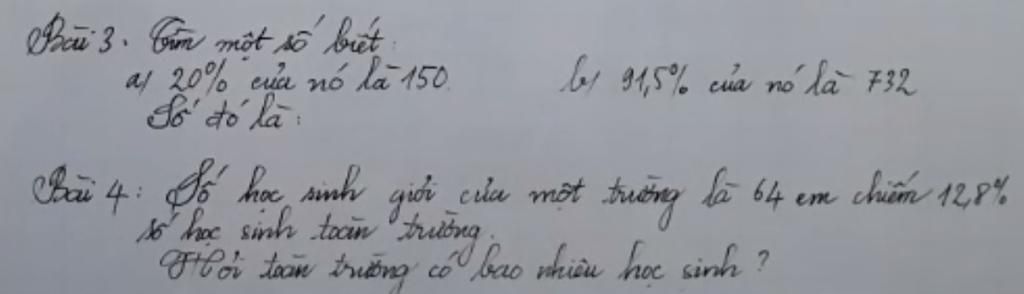 Bài 3. Tìm một số biết:
a) 20% của nó là 150. b) 91,5% của nó là 732
Số đó là:
Bài 4: Số học sinh giỏi của một trường là 64 em chiếm 12,8%
số học sinh toàn trường.
Hỏi toàn trường có bao nhiêu học sinh?